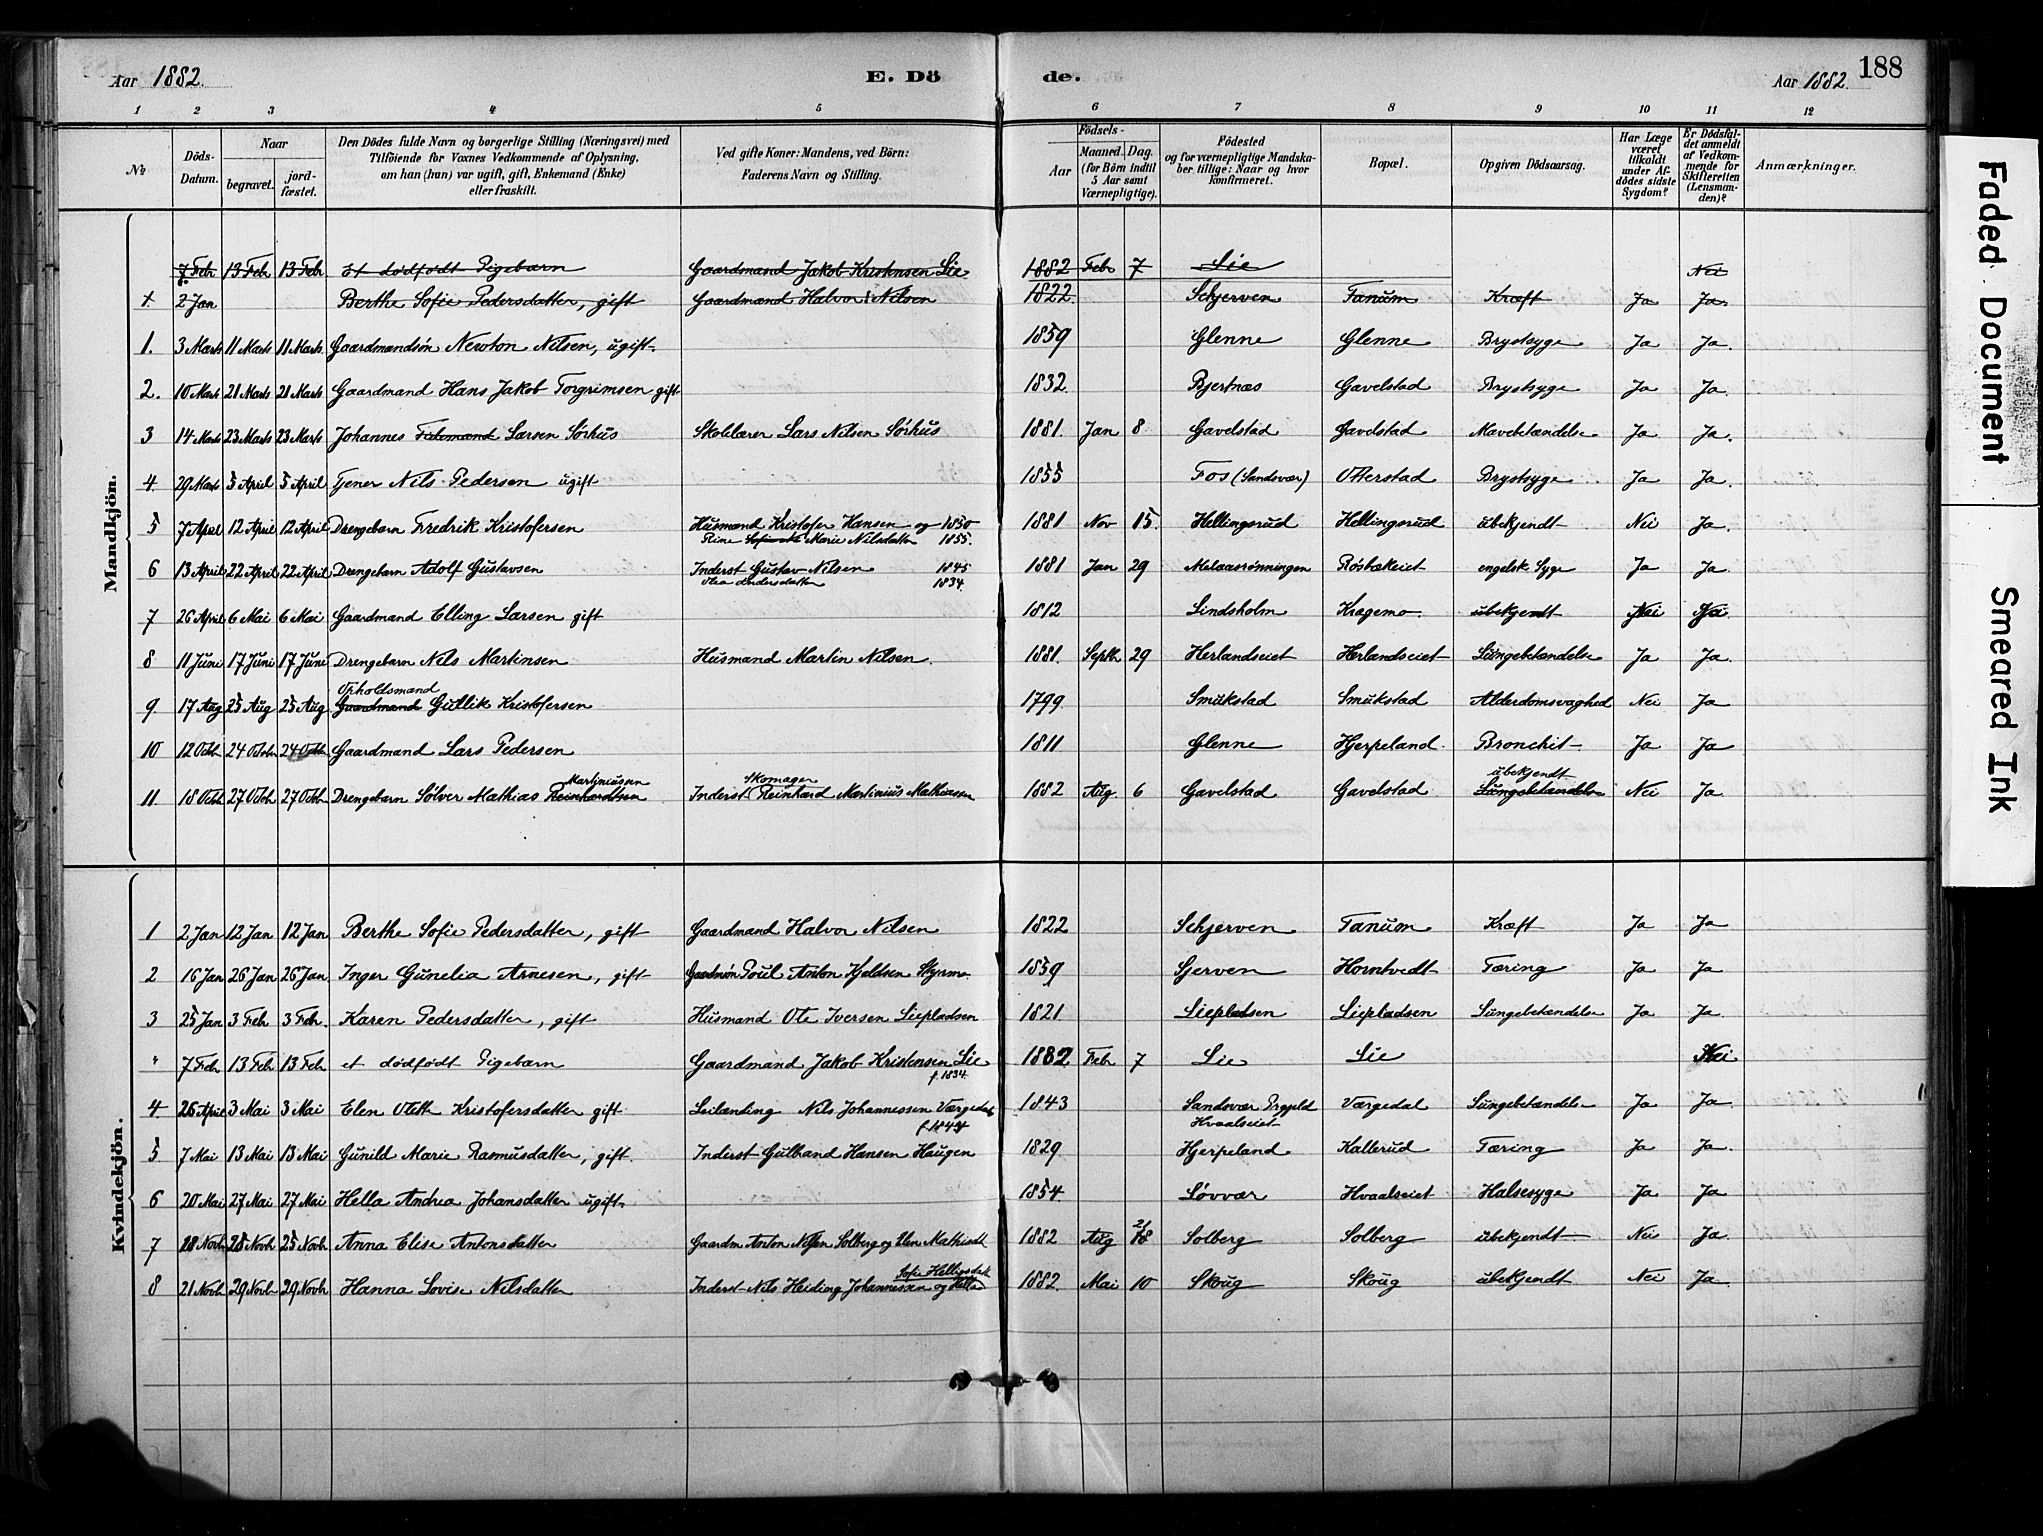 Aar 1882.
E. Dö
de.
Aar 1882.
188
1 2 3 4 5 6 7 8 9 10 11 12
№
Döds-Datum.
Naar
begravet.
jord-fæstet.
Den Dödes fulde Navn og borgerlige Stilling (Næringsvei) med
Tilföiende for Voxnes Vedkommende af Oplysning,
om han (hun) var ugift, gift, Enkemand (Enke)
eller fraskilt.
Ved gifte Koner: Mandens, ved Börn:
Faderens Navn og Stilling.
Födsels-
Aar
Maaned. Dag.
(for Börn indtil
5 Aar samt
Værnepligtige).
Födested
og for værnepligtige Mandska-
ber tillige: Naar og hvor
konfirmeret.
Bopæl.
Opgiven Dödsaarsag.
Har Læge
været
tilkaldt
under Af-
dödes sidste
Sygdom?
Er Dödsfal-
det anmeldt
af Vedkom-
mende for
Skifteretten
(Lensman-
den)?
Anmærkninger.
Mandkjön.
7 Febr 13 Feb 13 Feb Et dødfødt Pigebarn Gaardmand Jakob Kristensen Lie 1882 Feb 7 Lie Nei
2 Jan Berthe Sofie Pedersdatter, gift Gaardmand Halvor Nilsen 1822. Schjerven Fanum Kræft Ja Ja
1. 3 Marts 11 Marts 11 Marts Gaardmandsøn Newton Nilsen, ugift. 1859 Glenne Glenne Brystsyge Ja Ja.
2. 10 Marts 21 Marts 21 Marts Gaardmand Hans Jakob Torgrimsen gift 1832. Bjertnæs Gavelstad Brystsyge Ja Ja.
3 14 Marts 23 Marts 23 Marts Johannes Larsen Sørhus Skolelærer Lars Nilsen Sørhus 1881. Jan 8 Gavelstad Gavelstad Mavebetændelse Ja Ja.
4. 29 Marts 5 April 5 April Tjener Nils Pedersen ugift 1855 Fos (Sandsvær) Otterstad Brystsyge Ja Ja.
5 7 April 12 April 12 April Drengebarn Fredrik Kristofersen Husmand Kristofer Hansen og 1850 1881 Nov 15. Hellingsrud Hellingsrud ubekjendt Nei Ja.
Marie Nilsdatter 1855.
6 13 April 22 April 22 April Drengebarn Adolf Gustavsen Inderst Gustav Nilsen 1845 1881 Jan 29 Melaasrønningen Røsbækeiet engelsk Syge Ja Ja
Olea Andersdatter 1834.
7 26 April 6 Mai 6 Mai Gaardmand Elling Larsen gift 1812 Lindsholm Kragemo ubekjendt Nei Nei
8 11 Juni 17 Juni 17 Juni Drengebarn Nils Martinsen Husmand Martin Nilsen. 1881. Septb 29 Herlandseiet Herlandseiet Lungebetændelse Ja Ja.
Opholdsmand
9 17 Aug 25 Aug 25 Aug Gaardmand Gullik Kristofersen 1799 Smukstad Smukstad Alderdomssvaghed Nei Ja
10 12 Octb 24 Octb 24 Octb Gaardmand Lars Pedersen 1811 Glenne Hjerpeland. Bronchit Ja Ja
Martiniussen Skomager ubekjendt
11 18 Octb 27 Octb 27 Octb Drengebarn Sølver Mathias Reinhardtsen Inderst Reinhard Martinius Mathiassen 1882 Aug. 6 Gavelstad Gavelstad Lungebetændelse Nei Ja
Kvindekjön.
1 2 Jan 12 Jan 12 Jan Berthe Sofie Pedersdatter, gift Gaardmand Halvor Nilsen 1822 Schjerven Fanum Kræft Ja Ja
2 16 Jan 26 Jan 26 Jan Inger Gunelia Arnesen, gift Gaardmøn Poul Anton Kjeldsen Styrmo 1859 Sjerven Horntvedt Tæring Ja Ja
3 25 Jan 3 Feb 3 Feb. Karen Pedersdatter, gift Husmand Ole Iversen Liepladsen 1821 Liepladsen Liepladsen Lungebetændelse Ja Ja.
" 7 Feb 13 Feb 13 Feb et dødfødt Pigebarn Gaardmand Jakob Kristensen Lie 1882. Feb 7 Lie Lie Nei
f. 1834.
4 26 April 3 Mai 3 Mai Elen Oleth Kristofersdatter gift Leilænding Nils Johannessen Værgedal 1843 Sandsvær Prgjeld Værgedal Lungebetændelse Ja Ja.
Hvaalseiet
5 7 Mai 13 Mai 13 Mai Gunild Marie Rasmusdatter, gift. Inderst Gulbrand Hansen Haugen 1829 Hjerpeland Kallerud Tæring Ja Ja.
6 20 Mai 27 Mai 27 Mai Hella Andrea Johansdatter ugift. 1854 Løvvær Hvaalseiet Halsesyge Ja Ja
7 18 Novb 25 Novb 25 Novb Anna Elise Antonsdatter Gaardm. Anton Nilsen Solberg og Elen Mathisdt 1882 Aug 21/18 Solberg Solberg ubekjendt Nei Ja
Sofie Helligsdatt
8 21 Novb 29 Novb 29 Novb Hanna Lovise Nilsdatter Inderst Nils Heiding Johannessen og Hella 1882. Mai 10 Skoug Skoug ubekjendt Nei Ja
Faded Document
Smeared Ink